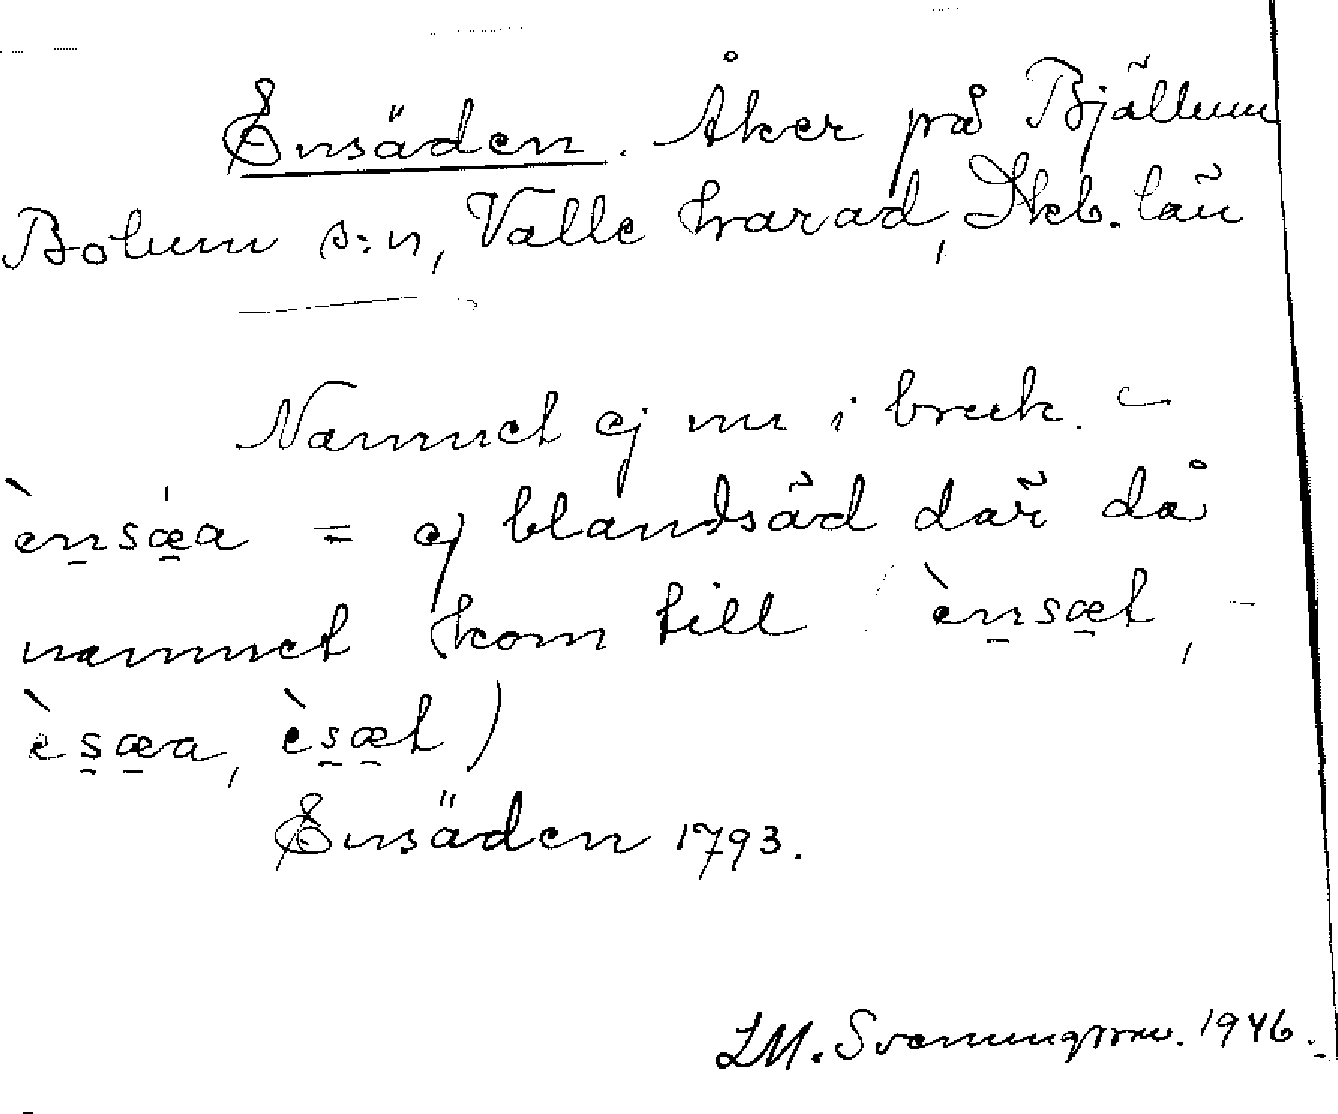 Ensäden. Åker på Bjällum
Bolum s:n, Valle härad, Skb. län
Namnet ej nu i bruk. –
ènsæa = ej blandsäd där då
namnet kom till ènsæt, –
èsæa, èsæt)
Ensäden 1793.
LM. Svenungsson. 1946.